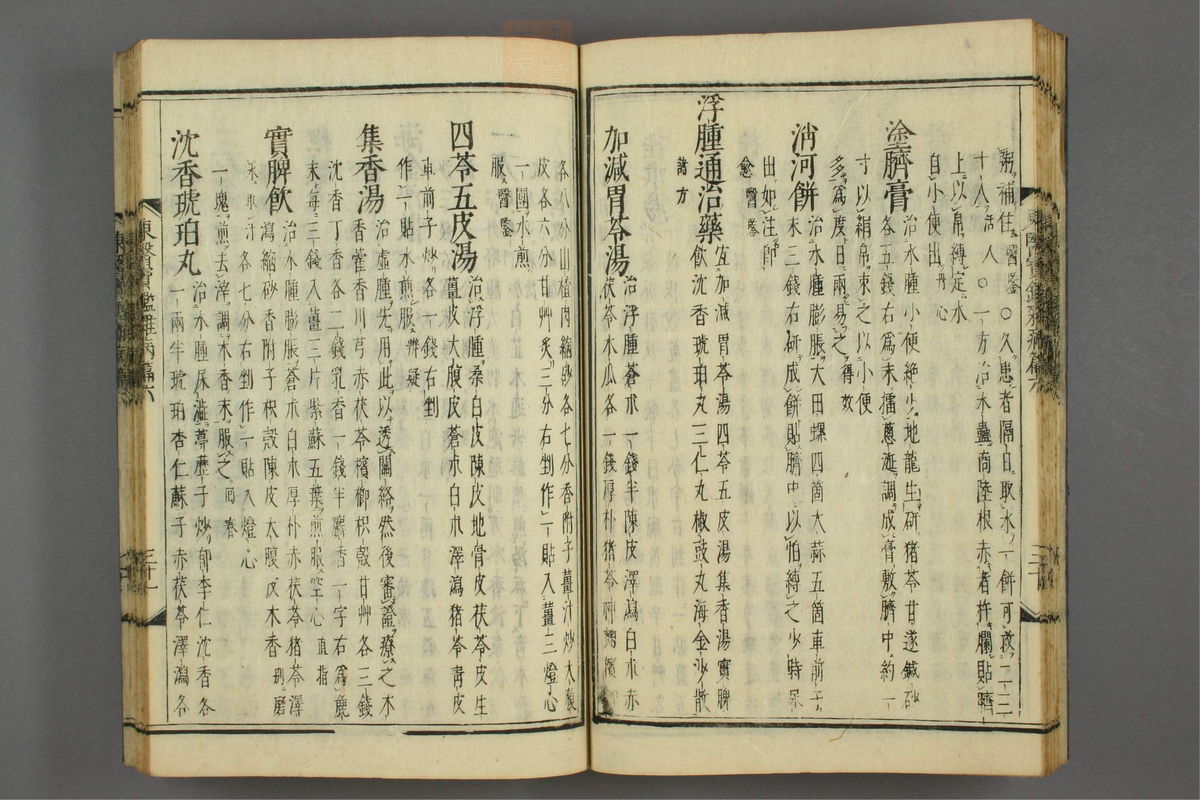 朔補住醫鑒○久患者隔日取水一餠可救二三
十人活人○一方治水蠱商陸根赤者杵爛貼臍
上以帛縛定水
自小便出丹心
塗臍膏
治水腫小便絶少地龍生研猪苓甘遂鍼砂
各五錢右爲末擂葱涎調成膏敷臍中約一
寸以絹帛束之以小便
多爲度日兩易之得效
消河餠
治水腫膨脹大田螺四箇大蒜五箇車前子
末三錢右研成餠貼臍中以帕縛之少時尿
出如注即
愈醫鑒
浮腫通治藥
宜加減胃苓湯四苓五皮湯集香湯實脾
飮沈香琥珀丸三仁丸椒豉丸海金沙散
諸方
加減胃苓湯
治浮腫蒼朮一錢半陳皮澤瀉白朮赤
茯苓木瓜各一錢厚朴猪苓神麴檳榔
各八分山楂肉縮砂各七分香附子薑汁炒大腹
皮各六分甘艸炙三分右剉作一貼入薑三燈心
一團水煎
服醫鑒
四苓五皮湯
治浮腫桑白皮陳皮地骨皮茯苓皮生
薑皮大腹皮蒼朮白朮澤瀉猪苓靑皮
車前子炒各一錢右剉
作一貼水煎服辨疑
集香湯
治虛腫先用此以透關絡然後審證療之木
香藿香川芎赤茯苓檳榔枳殼甘艸各三錢
沈香丁香各二錢乳香一錢半麝香一字右爲麄
末每三錢入薑三片紫蘇五葉煎服空心直指
實脾飮
治水腫膨脹蒼朮白朮厚朴赤茯苓猪苓澤
瀉縮砂香附子枳殼陳皮大腹皮木香別磨
水取汁各七分右剉作一貼入燈心
一塊煎去滓調木香末服之回春
沈香琥珀丸
治水腫尿澁葶藶子炒郁李仁沈香各
一兩半琥珀杏仁蘇子赤茯苓澤瀉各
東醫寶鑑雜病篇六
三十一